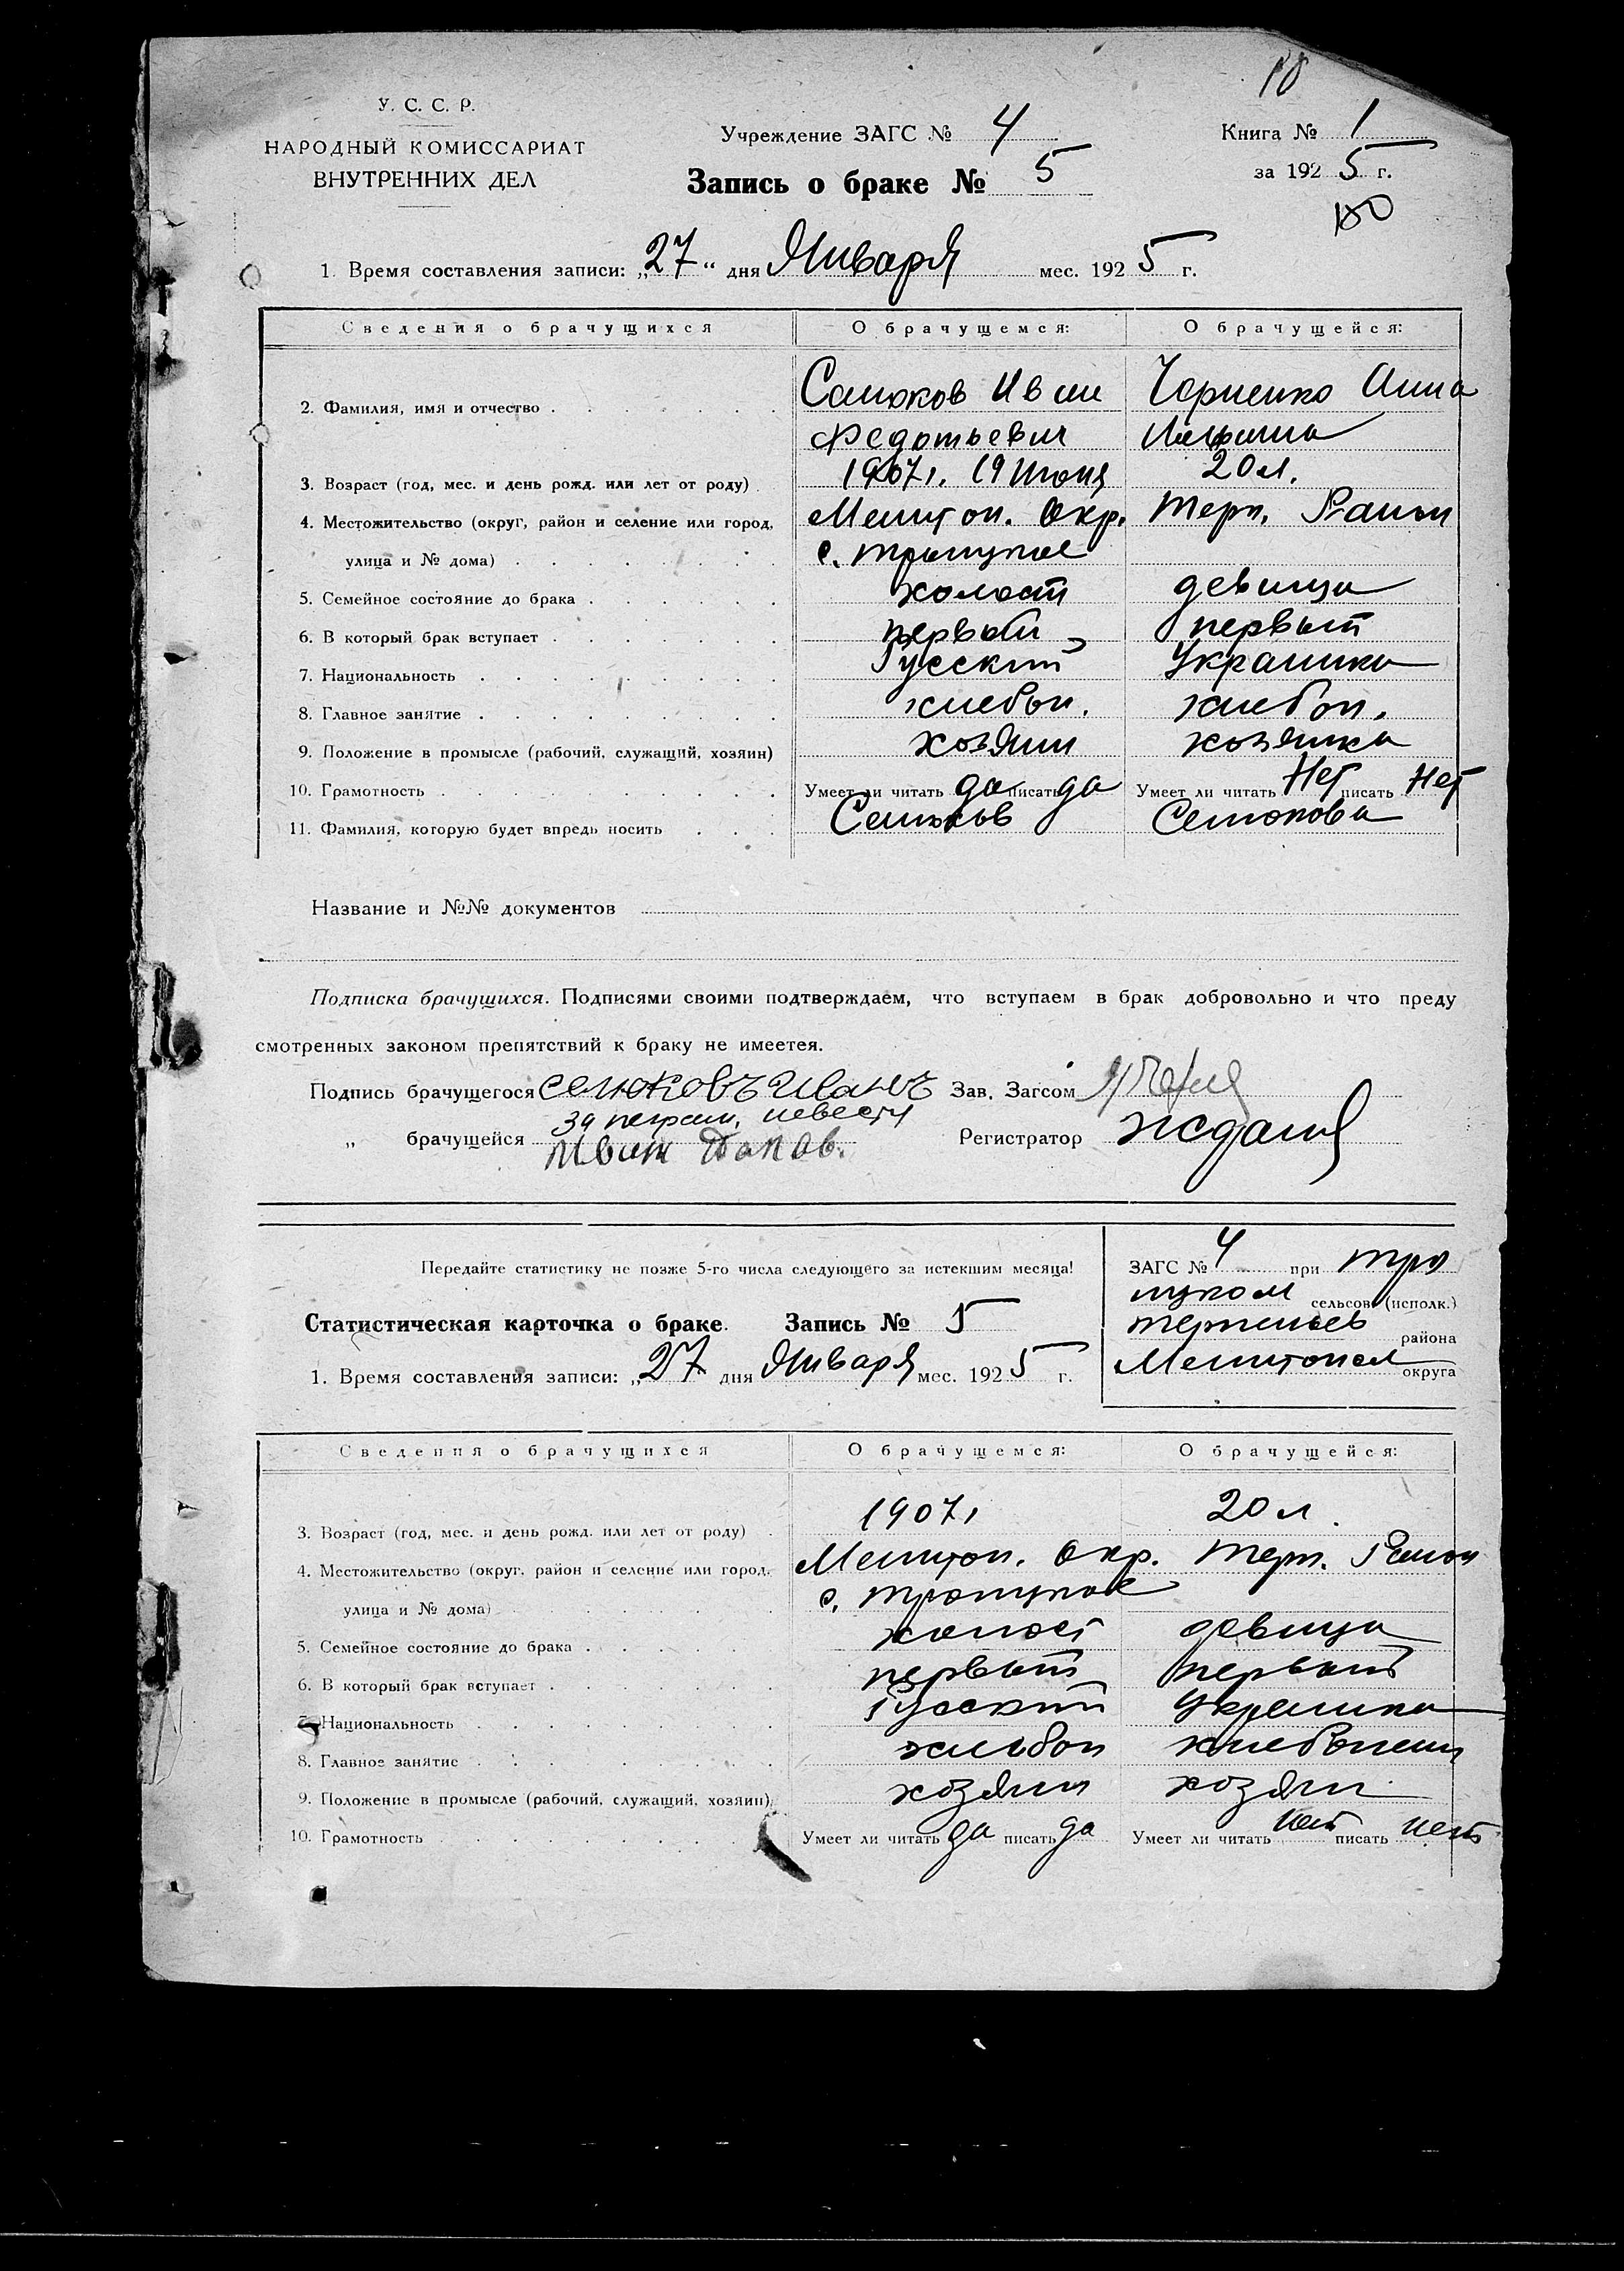 18
У. С. С. Р.
НАРОДНЫЙ КОМИССАРИАТ
ВНУТРЕННИХ ДЕЛ
Учреждение ЗАГС № 4
Запись о браке № 5
Книга № 1
за 1925 г.
1. Время составления записи: „27“ дня Января мес. 1925 г.
Сведения о брачущихся О брачущемся: О брачущейся:
2. Фамилия, имя и отчество Семюков Иван Чорненко Анна
Федотьевич
3. Возраст (год, мес. и день рожд. или лет от роду) 1907 г. 19 Июня 20 л.
4. Местожительство (округ, район и селение или город, Мелитоп. Окр. Терп. Раион
улица и № дома) с. Троицкое
5. Семейное состояние до брака холост девица
6. В который брак вступает первый первый
7. Национальность Русский Украинка
8. Главное занятие хлебоп. хлебоп.
9. Положение в промысле (рабочий, служащий, хозяин) хозяин хозяйка
10. Грамотность Умеет ли читать да писать да Умеет ли читать Нет писать Нет
11. Фамилия, которую будет впредь носить Семюков Семюкова
Название и №№ документов
Подписка брачущихся. Подписями своими подтверждаем, что вступаем в брак добровольно и что преду
смотренных законом препятствий к браку не имеетея.
Подпись брачущегося Семюковъ Иванъ Зав. Загсом
за неграм. невесту
„ брачущейся Иван Попов. Регистратор Ждан
Передайте статистику не позже 5-го числа следующего за истекшим месяца!
ЗАГС № 4 при Тро
ицком сельсов. (исполк.)
Терпеньев района
Мелитопол округа
Статистическая карточка о браке. Запись № 5
1. Время составления записи: „27 дня Января мес. 1925 г.
Сведения о брачущихся О брачущемся: О брачущейся:
3. Возраст (год, мес. и день рожд. или лет от роду) 1907 г 20 л.
4. Местожительство (округ, район и селение или город, Мелитоп. Окр. Терп. Раион
улица и № дома) с. Троицкое
5. Семейное состояние до брака холост девица
6. В который брак вступает первый первый
7. Национальность Русский Украинка
8. Главное занятие хлебоп хлебопаш
9. Положение в промысле (рабочий, служащий, хозяин) хозяин хозяин
10. Грамотность Умеет ли читать да писать да Умеет ли читать нет писать нет